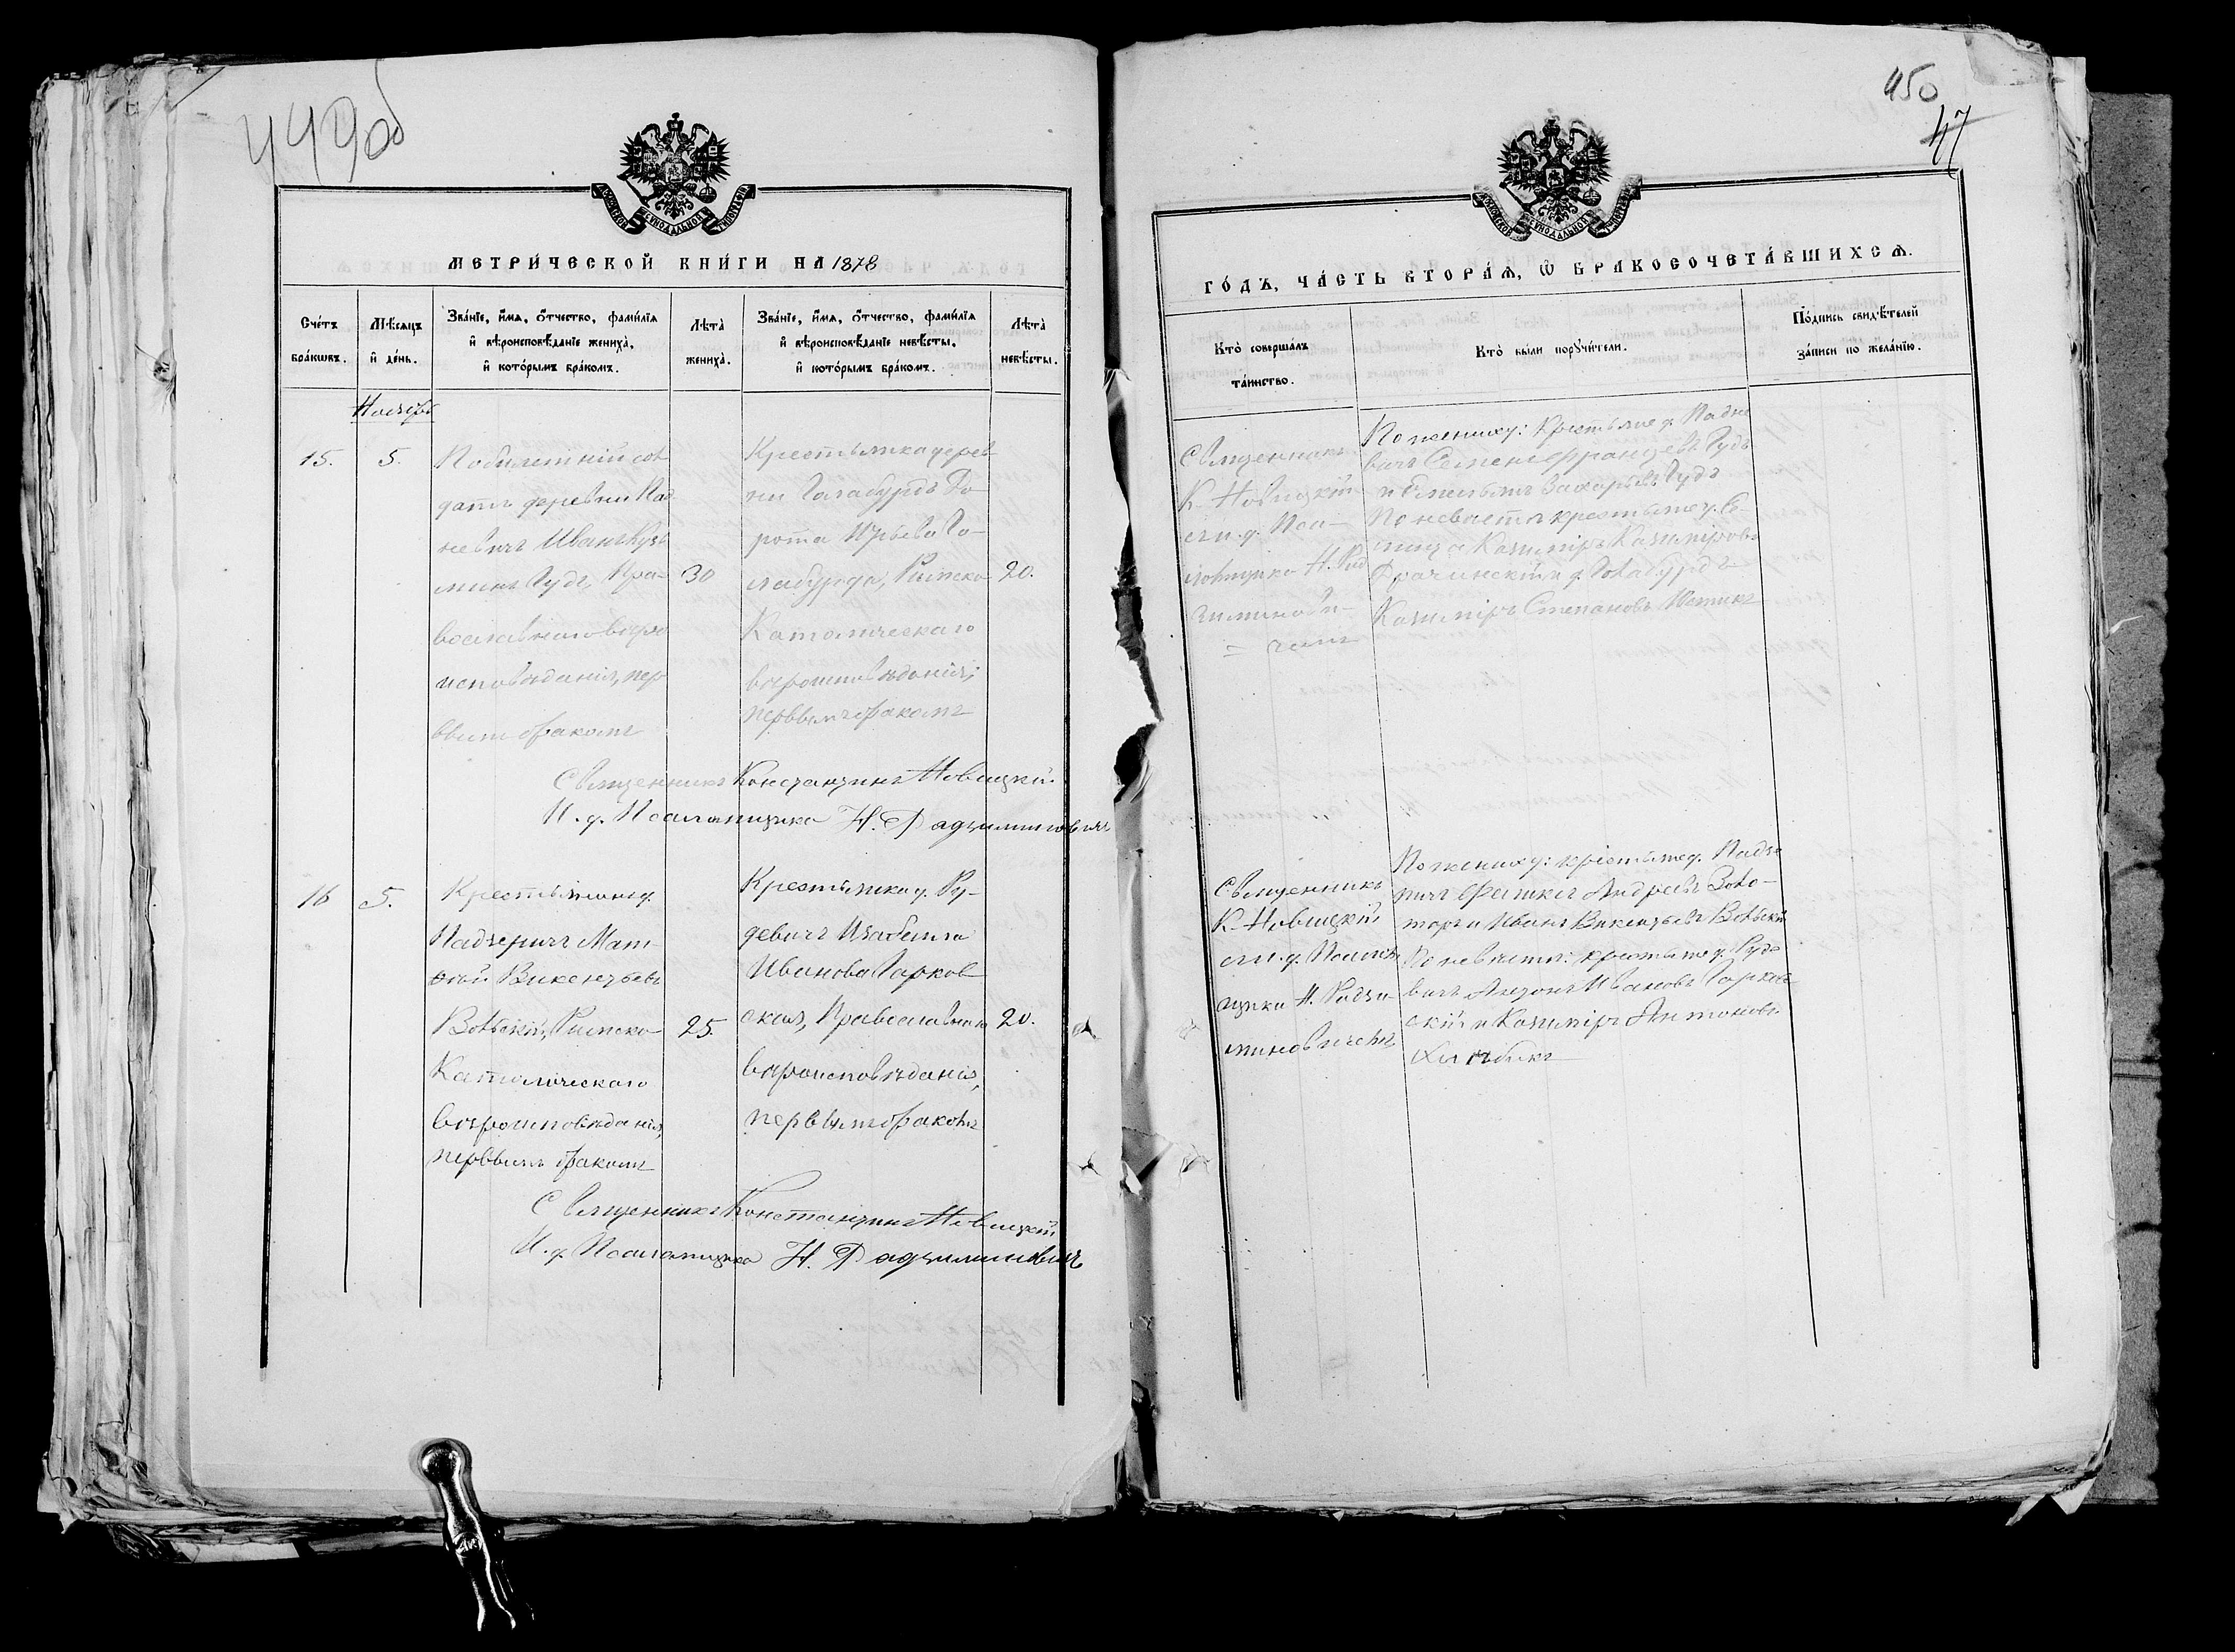 449об
МОСКОВСКОЙ СѴНОДАЛЬНОЙ ТИПОГРАФІИ
МЕТРИ́ЧЕСКОЙ КНИ́ГИ НА 1878
Сче́тъ бра́кѡвъ.
Мѣ́сяцъ и҆ де́нь.
Зва́нїе, и҆́мѧ, ѻ҆́тчество, фами́лїѧ
и҆ вѣроисповѣ́данїе жениха̀,
и҆ кото́рымъ бра́комъ.
Лѣта̀ жениха̀.
Зва́нїе, и҆́мѧ, ѻ҆́тчество, фами́лїѧ
и҆ вѣроисповѣ́данїе невѣ́сты,
и҆ кото́рымъ бра́комъ.
Лѣта̀ невѣ́сты.
Ноября
15.
5.
Побилетній сол
датъ деревни Пад
невичъ Иванъ Кузь
минъ Гудъ, Пра-
вославнаго вѣро
исповѣданія, пер
ввымъ бракомъ
30
Крестьянка дерев
ни Галабурдъ До
рота Юрьева Го-
лабурда, Римско
Католическаго
вѣроисповѣданія,
перввымъ бракомъ
20.
Священникъ Константинъ Новицкій.
И. д. Псаломщика Н. Радзиминовичъ
16
5.
Крестьянинъ д.
Падзеричъ Мат-
ѳей Викентьевъ
Вольскій, Римско
Католическаго
вѣроисповѣданія,
перввымъ бракомъ
25.
Крестьянка д. Ру-
девичъ Изабелла
Иванова Гарков
ская, Православнаго
вѣроисповѣданія,
перввымъ бракомъ
20.
Священникъ Константинъ Новицкій
И. д. Псаломщика Н. Радзиминовичъ
450
47
МОСКОВСКОЙ СѴНОДАЛЬНОЙ ТИПОГРАФІИ
ГО́ДЪ, ЧА́СТЬ ВТОРА́Ѧ, Ѽ БРАКОСОЧЕТА́ВШИХСѦ.
Кто̀ соверша́лъ
та́инство.
Кто̀ бы́ли порꙋчи́тели.
По́дпись свидѣ́телей
за́писи по жела́нїю.
Священникъ
К. Новицкій
съ и. д. Пса-
ломщика Н. Рад
зиминови-
= чемъ
По жениху: Крестьяне д. Падне
вичъ Семенъ Францевъ Гудъ
и Емельянъ Захарьевъ Гудъ
По невѣстѣ крестьяне д.
Казиміръ Казиміровъ
Драчинскій и д. Голабурдъ
Казиміръ Степановъ
Священникъ
К. Новицкій
съ и. д. Псалом
щика Н. Радзи-
миновичемъ
По жениху: крестьяне д. Падзе
ричъ Андреевъ
и Иванъ Викентьевъ Вольскій
По невѣстѣ: крестьяне д. Руде
вичъ Антонъ Ивановъ Гарков
скій и Казиміръ Антоновъ